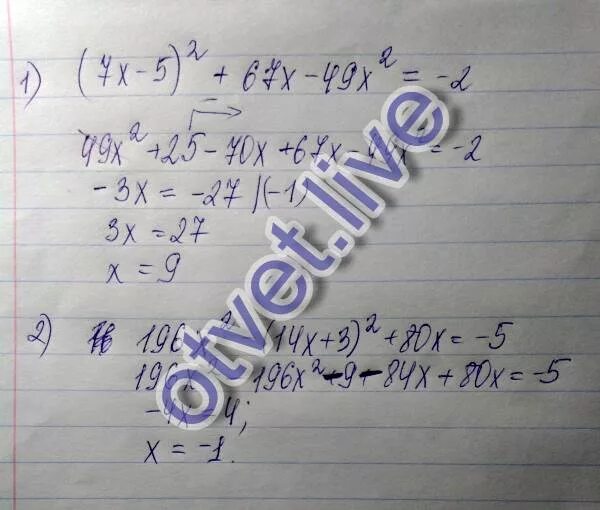 1) (7x-5)² + 67x - 49x² = -2
49x² + 25 - 70x + 67x - 49x² = -2
-3x = -27 |(-1)
3x = 27
x = 9
2) 196x² (14x+3)² + 80x = -5
196x² 196x² - 9 - 84x + 80x = -5
-4x = 4;
x = -1.
otvet.live